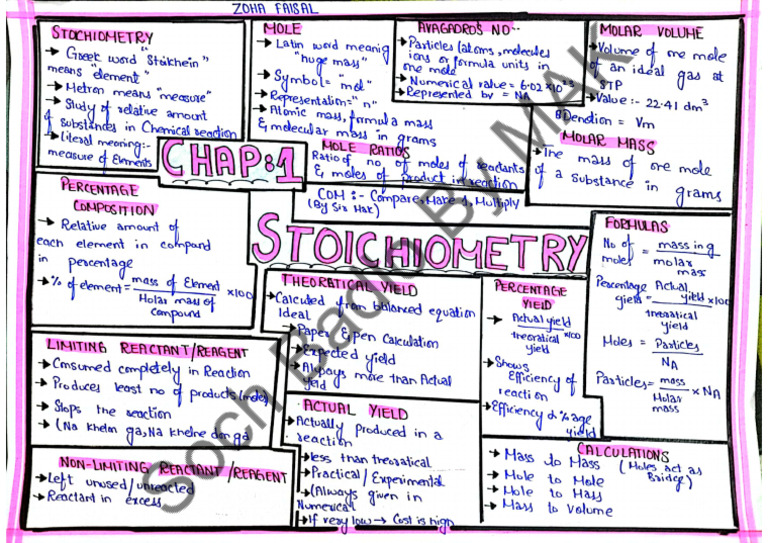 ZOHA FAISAL
STOCHIOMETRY
→ Greek word "Stoikhein"
means "element"
→ Metron means "measure"
→ Study of relative amount
of substances in Chemical reaction
→ Literal meaning:-
measure of Elements
MOLE
→ Latin word meanig
"huge mass"
→ Symbol= "mol"
→ Representation= "n"
→ Atomic mass, formula mass
& molecular mass in grams
MOLE RATIOS
Ratio of no of moles of reactants
& moles of product in reaction
COM :- Compare, Make 1, Multiply
(By Sir Mak)
AVAGADRO'S NO--
→ Particles (atoms, molecules
ions or formula units in
one mole
→ Numerical value = 6.02 × 10²³
→ Represented by = NA
MOLAR VOLUME
→ Volume of one mole
of an ideal gas at
STP
→ Value :- 22.41 dm³
Denotion = Vm
MOLAR MASS
→ The mass of one mole
of a substance in grams
CHAP:1
STOICHIOMETRY
PERCENTAGE
COMPOSITION
→ Relative amount of
each element in compound
in percentage
→ % of element = mass of Element / Molar mass of Compound ×100
LIMITING REACTANT/REAGENT
→ Consumed completely in Reaction
→ Produces least no of products (moles)
→ Stops the reaction
→ (Na khelon ga, Na khelne don ga
NON-LIMITING REACTANT/REAGENT
→ Left unused/unreacted
→ Reactant in excess
THEORATICAL YIELD
→ Calculated from balanced equation
Ideal
→ Paper & pen Calculation
→ Expected yield
→ Always more than Actual
yield
ACTUAL YIELD
→ Actually produced in a
reaction
→ less than theoratical
→ Practical/Experimental
→ (Always given in
Numerical
→ If very low → Cost is high
PERCENTAGE
YIELD
→ Actual yield / theoratical yield ×100
→ Shows
Efficiency of
reaction
→ Efficiency α %age
yield
FORMULAS
No of moles = mass in g / molar mass
Percentage yield = Actual yield / theoratical yield ×100
Moles = Particles / NA
Particles = mass / Molar mass × NA
CALCULATIONS
→ Mass to Mass (Moles act as
Bridge)
→ Mole to Mole
→ Mole to Mass
→ Mass to Volume
Soch Badlo By MAK